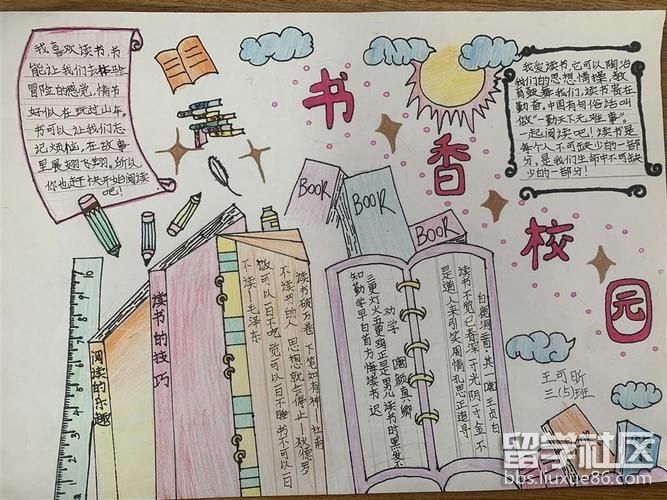 书香校园
我喜欢读书,书
能让我们去体验
冒险的感觉,情节
好似在玩过山车。
书可以让我们忘
记烦恼,在故事
里展翅飞翔。所以
你也赶快开始阅读
吧!
我爱读书,它可以陶冶
我们的思想、情操,教
育鼓舞我们,读书贵在
勤奋,中国有句俗话叫
做“一勤天下无难事”。
一起阅读吧!读书是
每个人不可缺少的一部
分,是我们生命中不可缺
少的一部分!
BOOK
BOOK
BOOK
阅读的乐趣
读书的技巧
读书破万卷 下笔如有神—杜甫
不读书的人 思想就会停止—狄德罗
饭可以一日不吃 觉可以一日不睡 书不可以一日
不读—毛泽东
劝学 颜真卿
三更灯火五更鸡正是男儿读书时黑发不
知勤学早白首方悔读书迟
白鹿洞首·其一 唐王贞白
读书不觉已春深一寸光阴一寸金不
是道人来引笑周情孔思正追寻
王可昕
三(5)班
留学社区
bbs.liuxue86.com